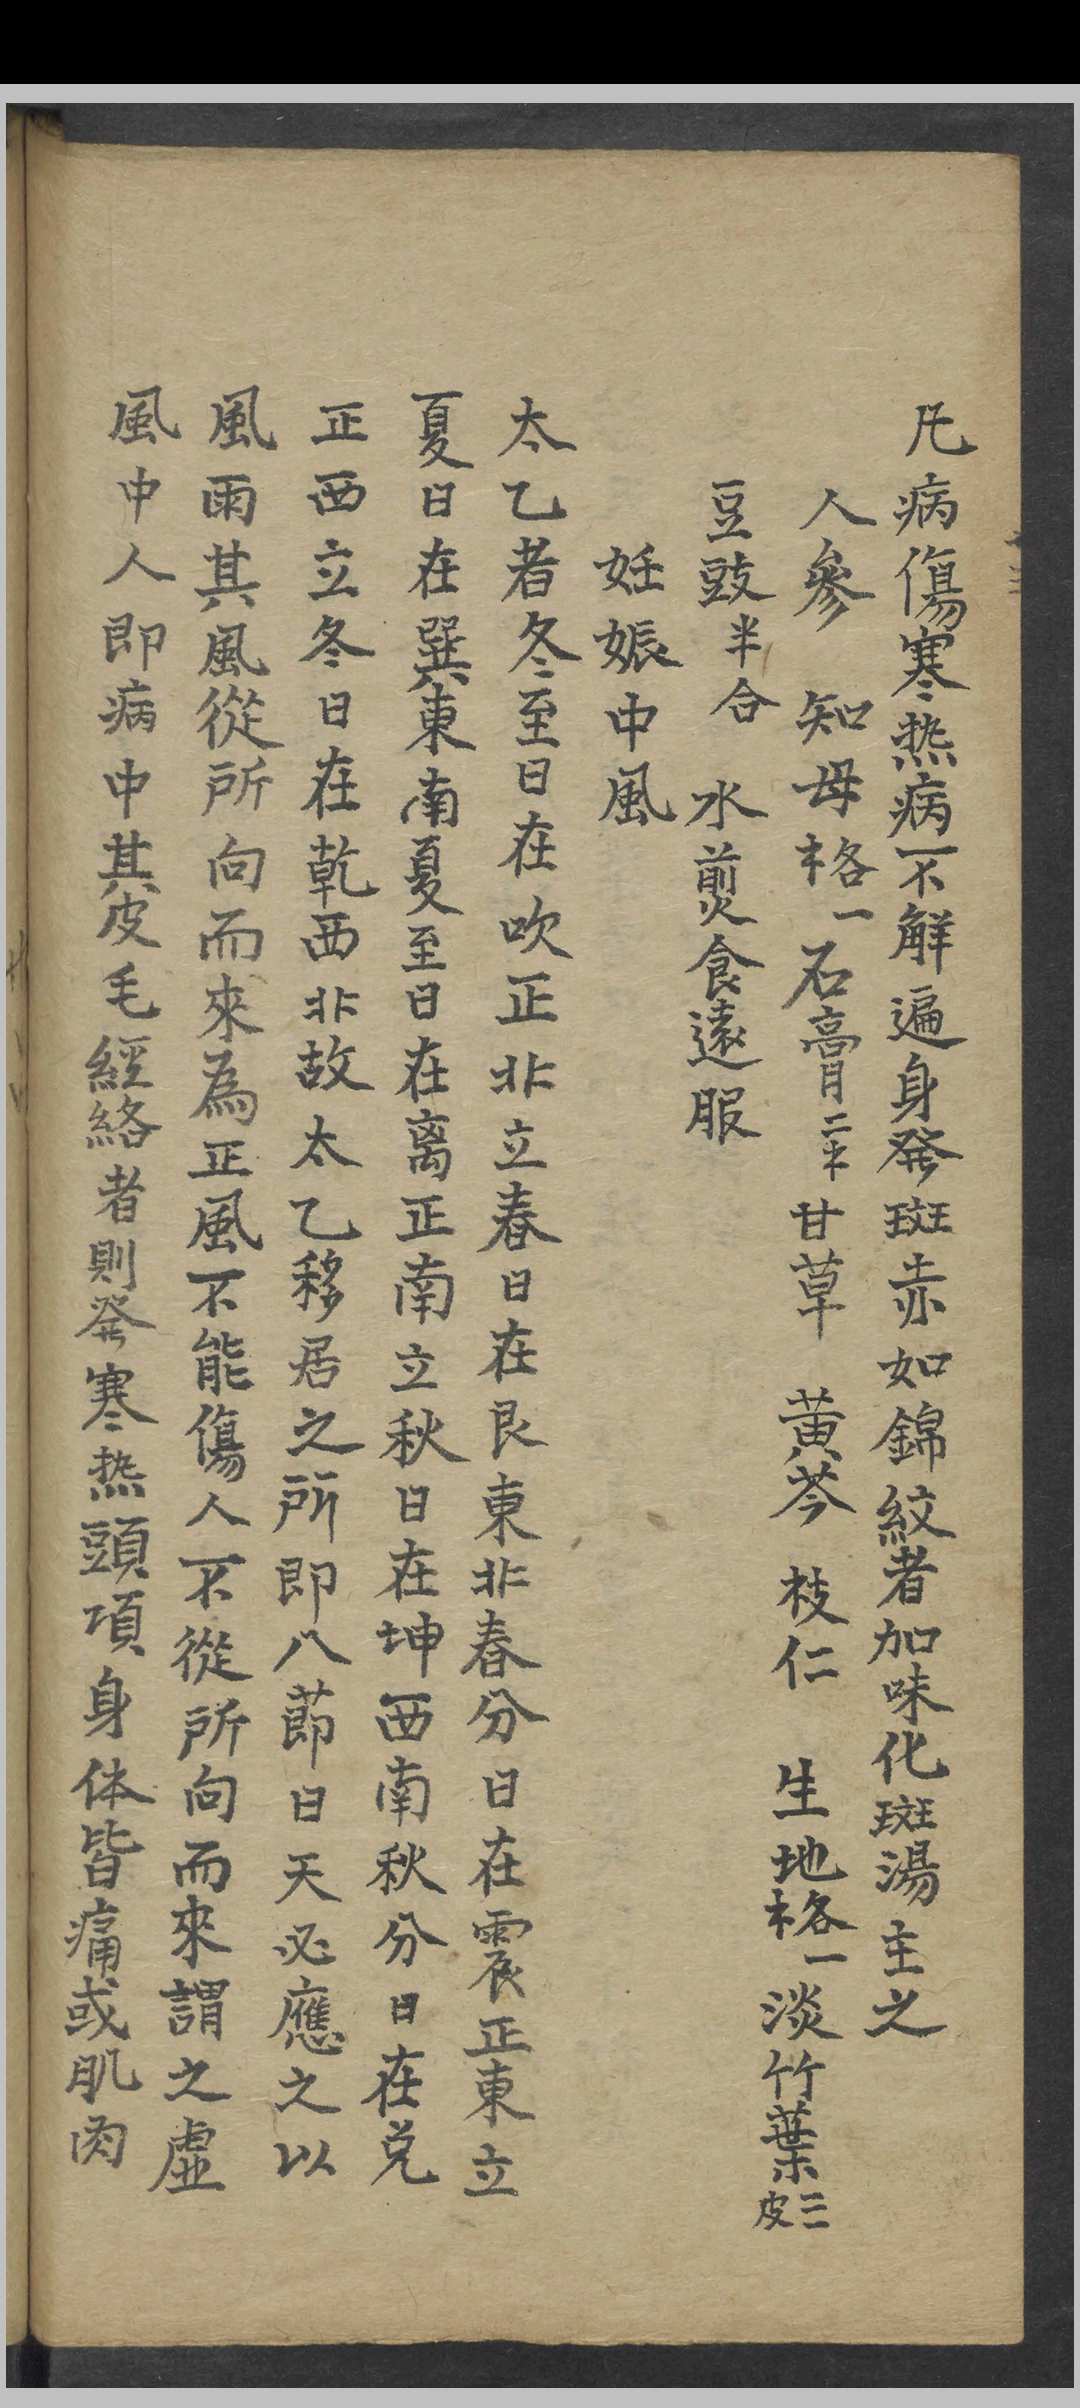 凡病傷寒热病不解遍身発斑赤如錦紋者加味化斑湯主之
人參 知母格一石膏二 甘草 黄芩 枝仁 生地格一淡竹葉二皮
豆豉半合 水煎食遠服
妊娠中風
太乙者冬至日在吹正非立春日在艮東非春分日在震正東立
夏日在巽東南夏至日在离正南立秋日在坤西南秋分日在兑
正西立冬日在乾西非故太乙移居之所即八莭日天必應之以
風雨其風從所向而來為正風不能傷人不從所向而來謂之虛
風中人即病中其皮毛經絡者則発寒热頭項身体皆痛或肌肉